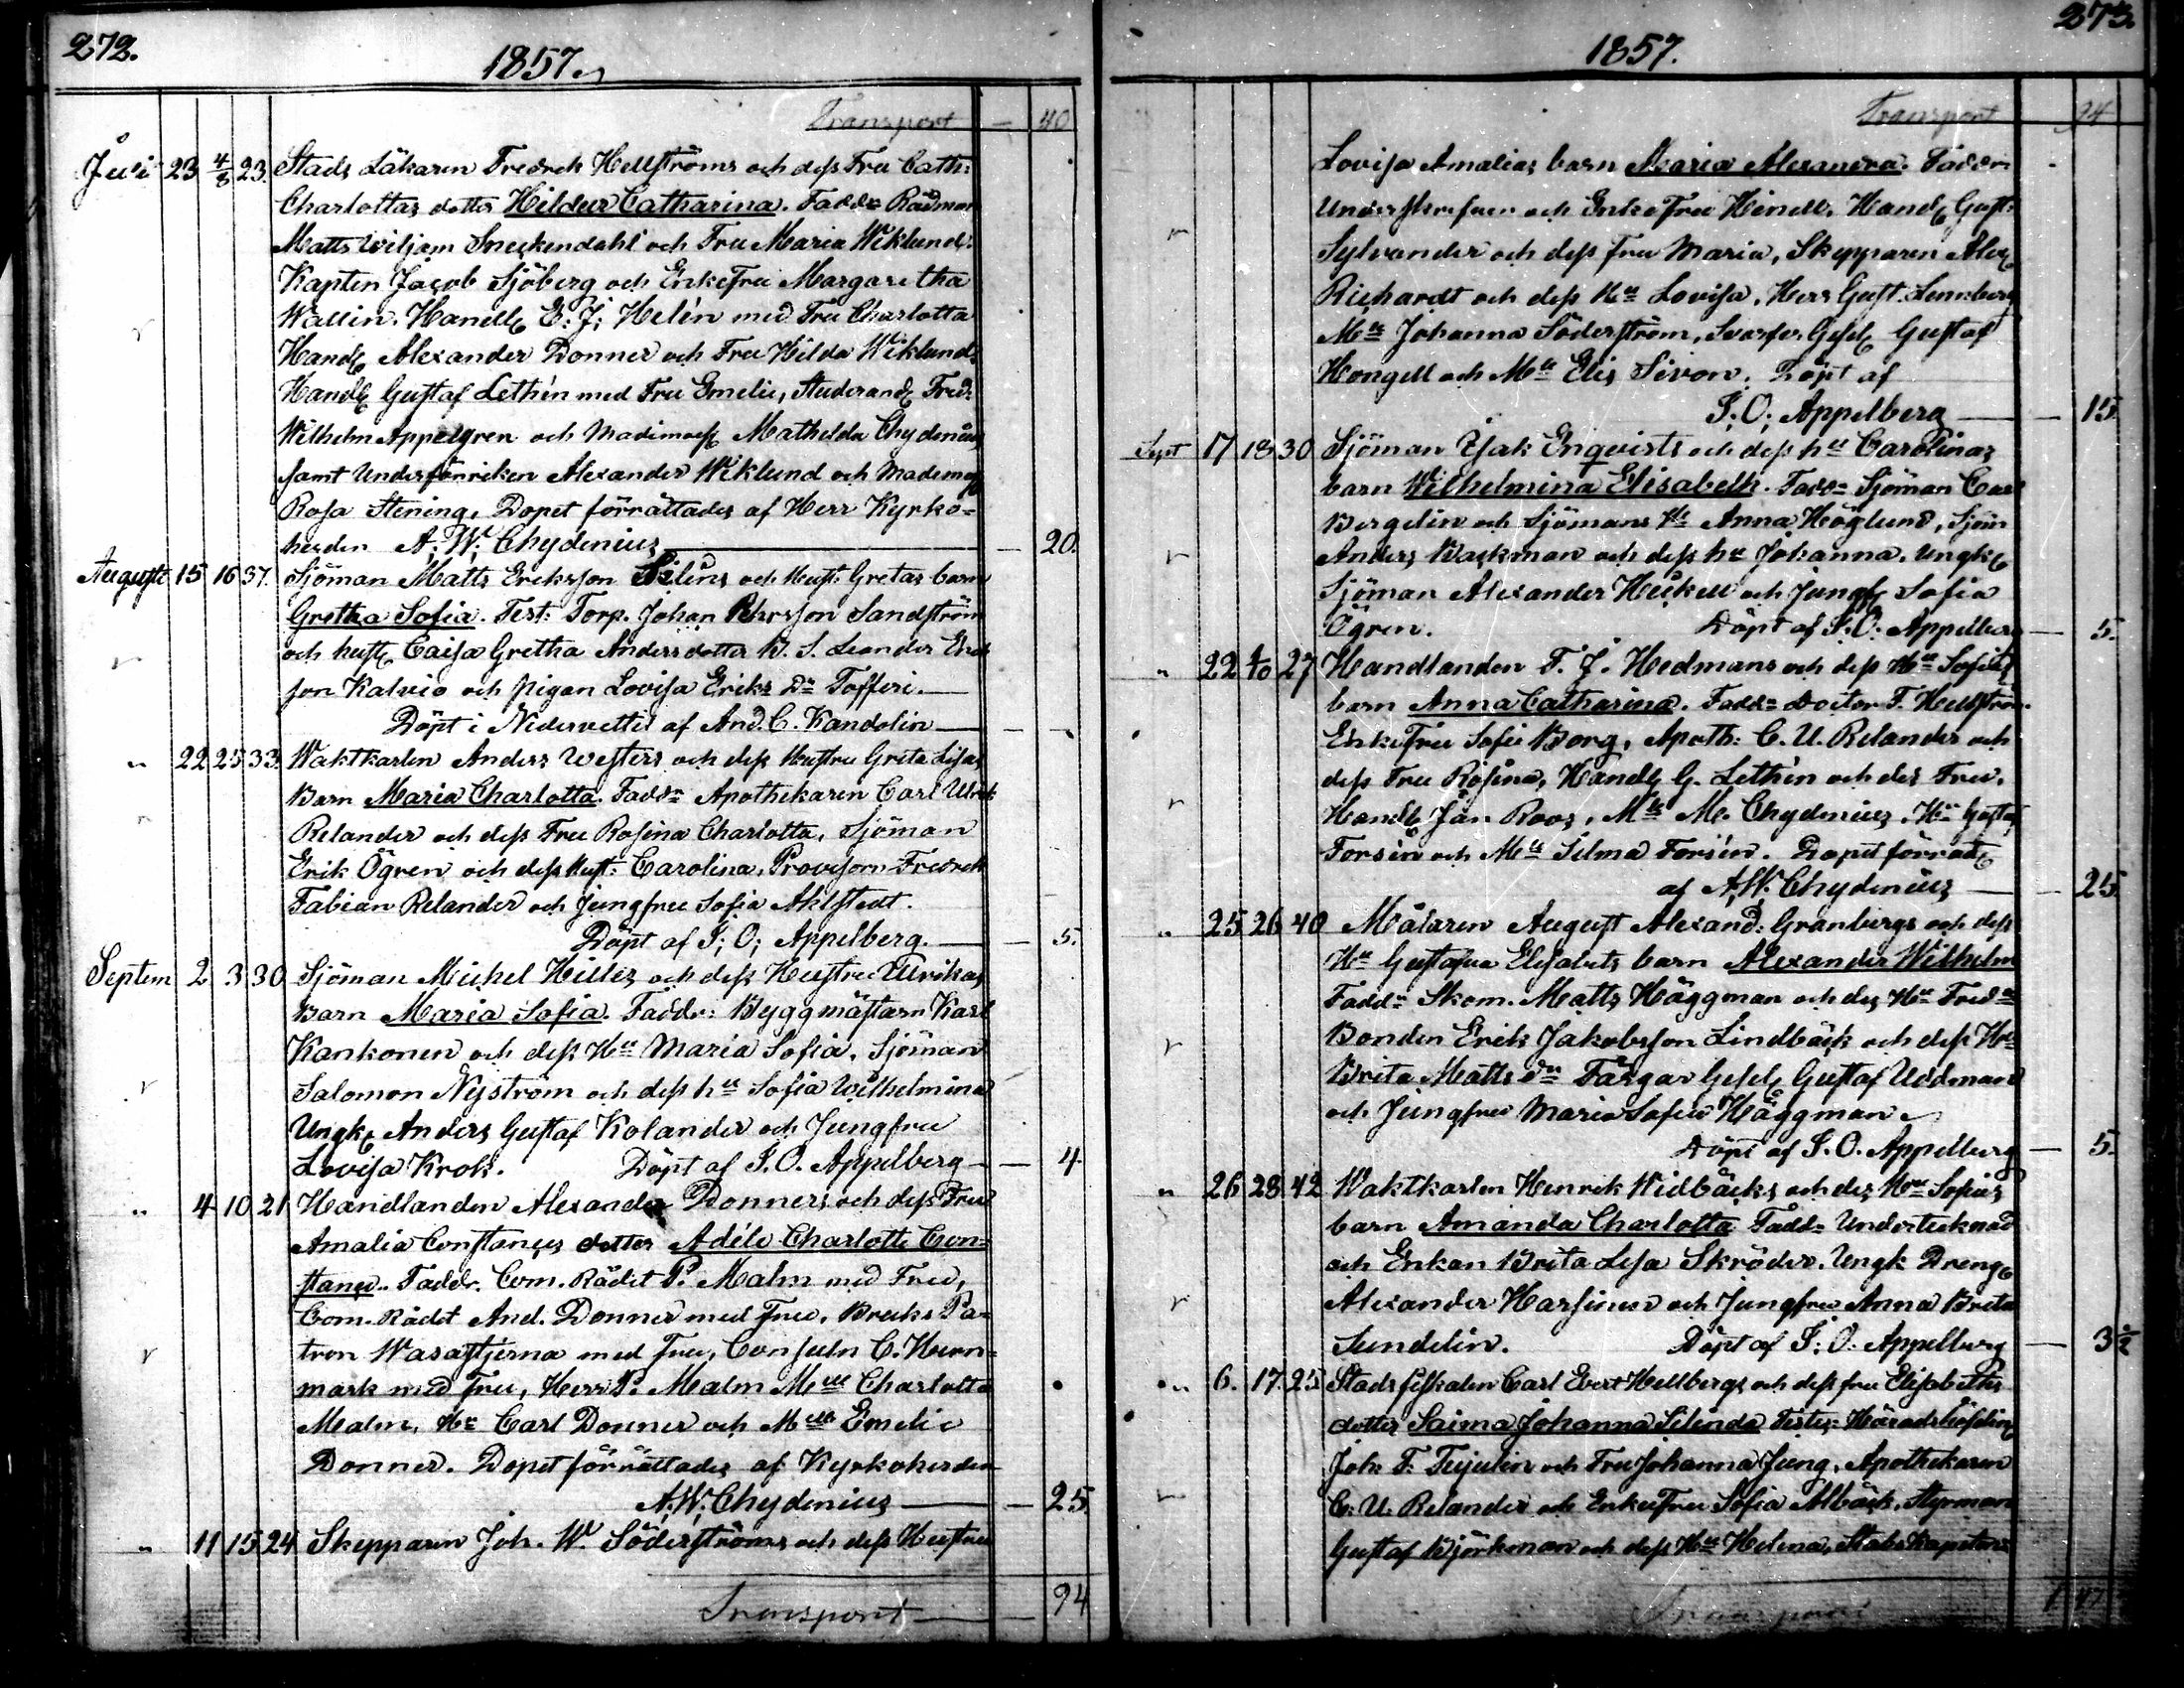 272.
1857.
Transport — 40
Juli 23 4/8 23. Stads Läkaren Fredrek Hellströms och dess Fru Cath:
Charlottas dotter Hildur Catharina. Faddr Rådman
Matts Wiljam Sneckendahl och Fru Maria Wiklund.
Kapten Jacob Sjöberg och Enkefru Margaretha
Wallin. Handl E: J: Helén med Fru Charlotta
Handl Alexander Donner och Fru Hilda Wiklund.
Handl Gustaf Lethén med Fru Emelie, Studerand Fred:
Wilhelm Appelgren och Mademois Mathilda Chydenius
samt Underförriken Alexander Wiklund och Mademois
Rosa Stening, Dopet förrättades af Herr Kyrko=
herden A: W: Chydenius — 20.
Augusti 15 16 37. Sjöman Matts Eriksson Siléns och Hust: Gretas barn
Gretha Sofia. Test: Torp. Johan Pehrsson Sandström
och hust Caisa Gretha Andersdotter B. S. Leander Erics
son Kalvio och pigan Lovisa Eriks Dr Tofferi.
Döpt i Nedervettil af And. C. Kandolin —
" 22 25 33. Waktkarlen Anders Westers och dess Hustru Greta Lisas
Barn Maria Charlotta. Faddr Apothekaren Carl Ulrik
Relander och dess Fru Rosina Charlotta, Sjöman
Erik Ögren och dess Hust: Carolina, Provisorn Fredrik
Fabian Relander och Jungfru Sofia Ahlstedt.
Döpt af J: O: Appelberg. — 5.
Septem 2 3 30 Sjöman Michel Hilles och dess Hustru Ulrikas
Barn Maria Sofia. Faddr: Byggmästarn Karl
Kankonen och dess Hu Maria Sofia. Sjöman
Salomon Nyström och dess hu Sofia Wilhelmina
Ungk Anders Gustaf Kolander och Jungfru
Lovisa Krok. Döpt af J. O. Appelberg — 4.
" 4 10 21 Handlanden Alexander Donners och dess Fru
Amalia Constances dotter Adéle Charlotte Con=
stance. Faddr. Com. Rådet P. Malm med Fru,
Com. Rådet And. Donner med Fru. Bruks Pa=
tron Wasastjerna med Fru, Consuln C. Hurn=
mark med Fru, Herr P. Malm Mlle Charlotta
Malm, Hr Carl Donner och Mlle Emelie
Donner. Dopet förrättades af Kyrkoherden
A: W: Chydenius — 25.
" 11 15 24 Skepparen Joh. W. Söderströms och dess Hustru
Transport — 94
273.
1857.
Transport 94
Lovisa Amalias barn Maria Alexandra. Faddr
Underskrefven och Enkefru Hendl. Handl Gust:
Sylvander och dess fru Maria, Skepparen Alex
Richardt och dess Hu Lovisa. Herr Gust. Lennberg
Mlle Johanna Söderström, Svarfv. Gesel Gustaf
Hongell och Mlle Elis Sivon. Döpt af
J: O: Appelberg — 15.
Sept 17 18 30 Sjöman Isak Enqvists och dess hu Carolinas
barn Wilhelmina Elisabeth. Faddr Sjöman Carl
Bergelin och Sjömans Hu Anna Höglund, Sjöm
Anders Backman och dess hu Johanna. Ungk
Sjöman Alexander Heickell och Jungf Sofia
Ögren. Döpt af J. O. Appelberg — 5.
" 22 4/10 27 Handlanden F. J. Hedmans och dess Hu Sofias
barn Anna Catharina. Faddr Doctor F. Hellström.
Enkefru Sofie Borg, Apoth: C. U. Relander och
dess Fru Rosina, Handl G. Lethén och des Fru.
Handl Jån Roos, Mlle M. Chydenius. Hr Gustaf
Forsén och Mlle Selma Forsén. Dopet förrätt
af A. W. Chydenius — 25.
" 25 26 40 Målaren August Alexand: Granbergs och dess
Hu Gustafva Elisabets barn Alexander Wilhelm
Faddr Skom. Matts Häggman och des Hu Fredr
Bonden Erik Jakobsson Lindbäck och dess Hu
Brita Matts dr Färgar Gesel Gustaf Uddman
och Jungfru Maria Sofia Häggman
Döpt af J. O. Appelberg — 5.
" 26 28 42 Waktkarlen Henrik Widbäcks och des Hu Sofias
barn Amanda Charlotta Faddr Undertecknad
och Enkan Brita Lisa Skröder. Ungk Dreng
Alexander och Jungfru Anna Brita
Sundelin. Döpt af J: O: Appelberg — 3 1/2
" 6. 17. 25 Stadsfiskalen Carl Evert Hellbergs och dess fru Elisabeths
dotter Saima Johanna Selinda Testes: Häradshöfding
Joh. F. och Fru Johanna Jung, Apothekaren
C: U. Relander och Enkefru Sofia Ahlbäck, Styrman
Gustaf Björkman och dess Hu Helena, Stabs Kapiten
Transport